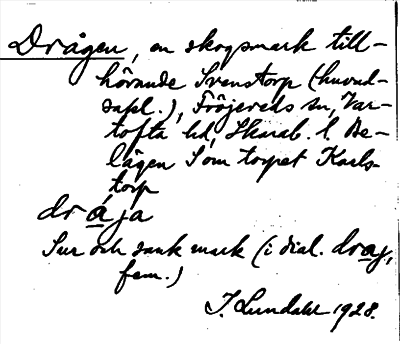 Drågen, en skogsmark till-
hörande Svenstorp (huvud-
sakl.), Fröjereds sn, Var-
tofta hd, Skarab. l. Be-
lägen S om torpet Karls-
torp
dråja
Sur och sank mark (i dial. draj,
fem.)
J. Lundahl 1928.